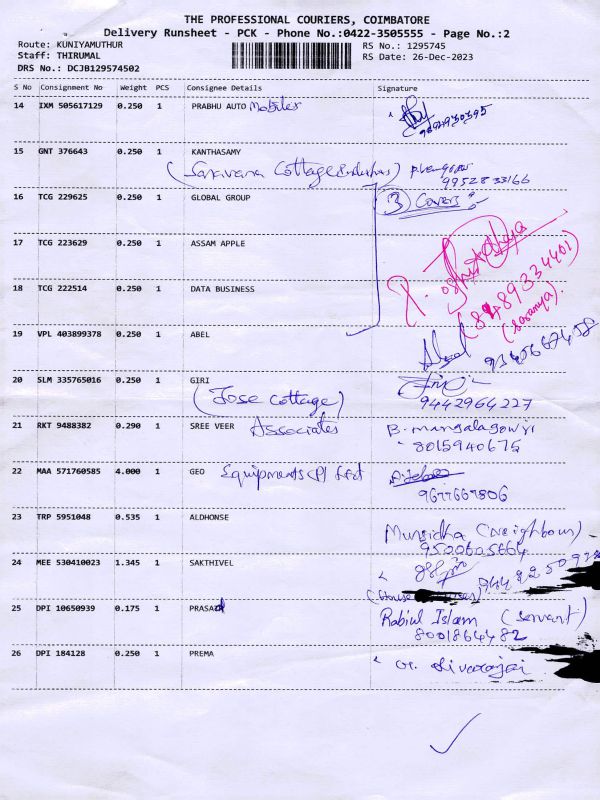 THE PROFESSIONAL COURIERS, COIMBATORE
Delivery Runsheet - PCK - Phone No.:0422-3505555 - Page No.:2
Route: KUNIYAMUTHUR
Staff: THIRUMAL
DRS No.: DCJB129574502
RS No.: 1295745
RS Date: 26-Dec-2023
S No Consignment No Weight PCS Consignee Details Signature
14 IXM 505617129 0.250 1 PRABHU AUTO Mobiles
15 GNT 376643 0.250 1 KANTHASAMY
(Saravana Cottage Industries)
9952833166
16 TCG 229625 0.250 1 GLOBAL GROUP
3 Covers
17 TCG 223629 0.250 1 ASSAM APPLE
18 TCG 222514 0.250 1 DATA BUSINESS
(8489334401)
(Saranya).
19 VPL 403899378 0.250 1 ABEL
9345667458
20 SLM 335765016 0.250 1 GIRI
(Jose Cottage)
9442964227
21 RKT 9488382 0.290 1 SREE VEER Associates B. Mangalagowri
8015940675
22 MAA 571760585 4.000 1 GEO Equipments (P) Ltd
9677667806
23 TRP 5951048 0.535 1 ALDHONSE
Mursidha (Neighbour)
9500605664
24 MEE 530410023 1.345 1 SAKTHIVEL
25 DPI 10650939 0.175 1 PRASAd
Rabiul Islam (Servant)
8001864482
26 DPI 184128 0.250 1 PREMA